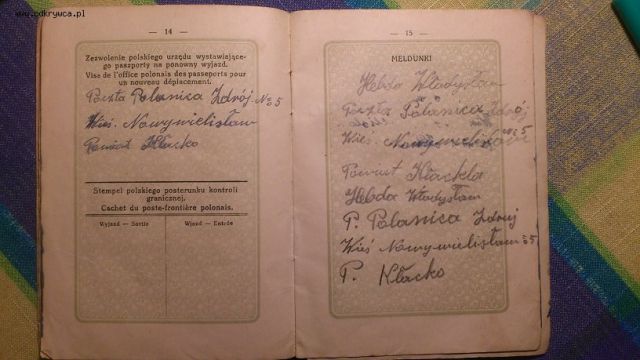 www.odkrywca.pl
— 14 —
Zezwolenie polskiego urzędu wystawiające-
go paszporty na ponowny wyjazd.
Visa de l'office polonais des passeports pour
un nouveau déplacement.
Poczta Polanica Zdrój № 5
Wieś. Nowywielisław
Powiat Kłacko
Stempel polskiego posterunku kontroli
granicznej.
Cachet du poste-frontière polonais.
Wyjazd — Sortie
Wjazd — Entrée
— 15 —
MELDUNKI
Hebda Władysław
Poczta Polanica Zdrój
Wieś. Nowywielisław № 5
Powiat Kłacko
Hebda Władysław
P. Polanica Zdruj
Wieś Nowywielisław № 5
P. Kłacko